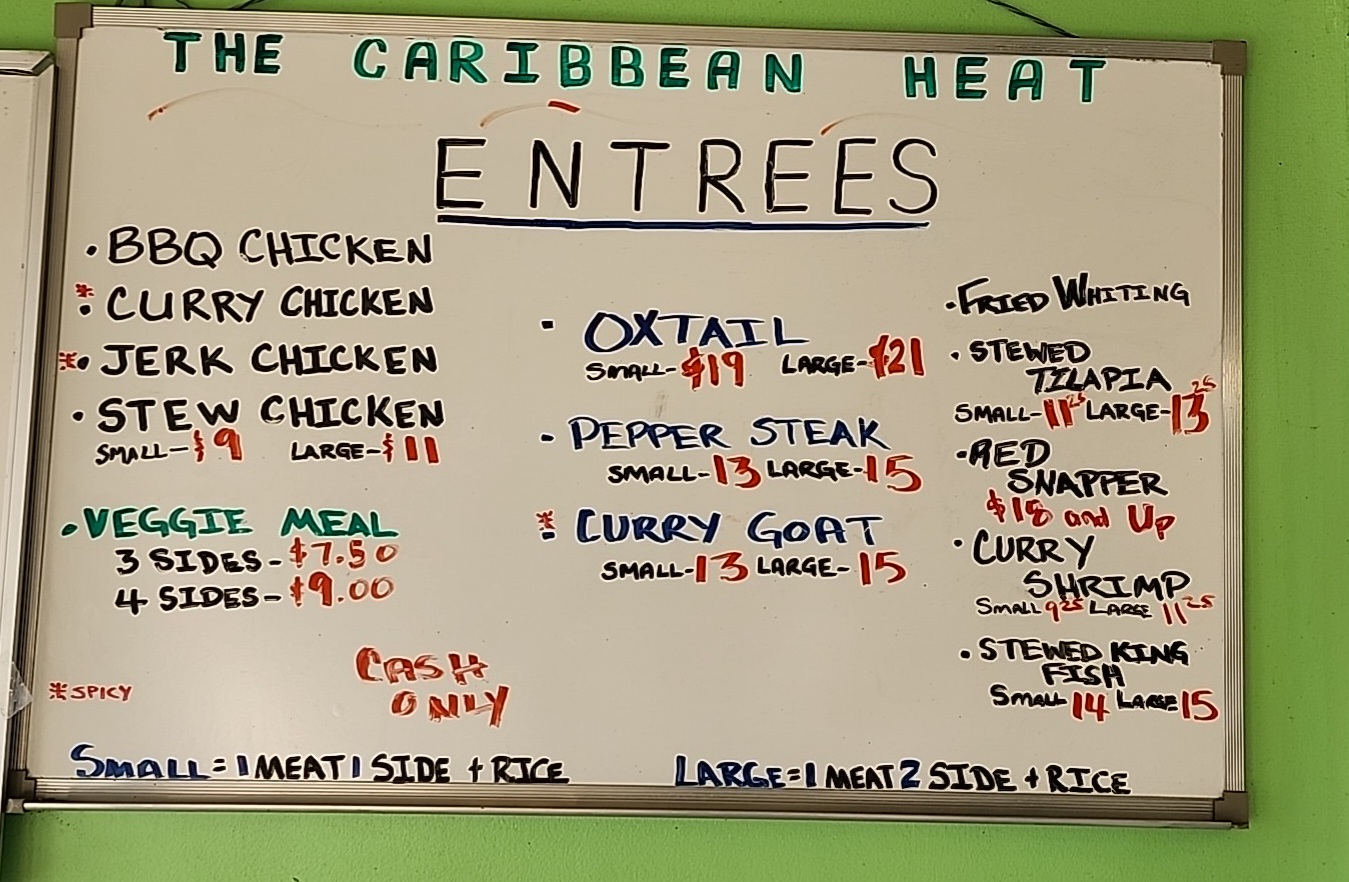 THE CARIBBEAN HEAT
ENTREES
• BBQ CHICKEN
* • CURRY CHICKEN
* • JERK CHICKEN
• STEW CHICKEN
SMALL-$9 LARGE-$11
• VEGGIE MEAL
3 SIDES-$7.50
4 SIDES-$9.00
CASH
ONLY
* SPICY
• OXTAIL
SMALL-$19 LARGE-$21
- PEPPER STEAK
SMALL-13 LARGE-15
* - CURRY GOAT
SMALL-13 LARGE-15
• FRIED WHITING
• STEWED
TILAPIA
SMALL-11.25 LARGE-13.25
• RED
SNAPPER
$18 and Up
• CURRY
SHRIMP
SMALL 9.25 LARGE 11.25
• STEWED KING
FISH
SMALL 14 LARGE 15
SMALL = 1 MEAT 1 SIDE + RICE
LARGE = 1 MEAT 2 SIDE + RICE